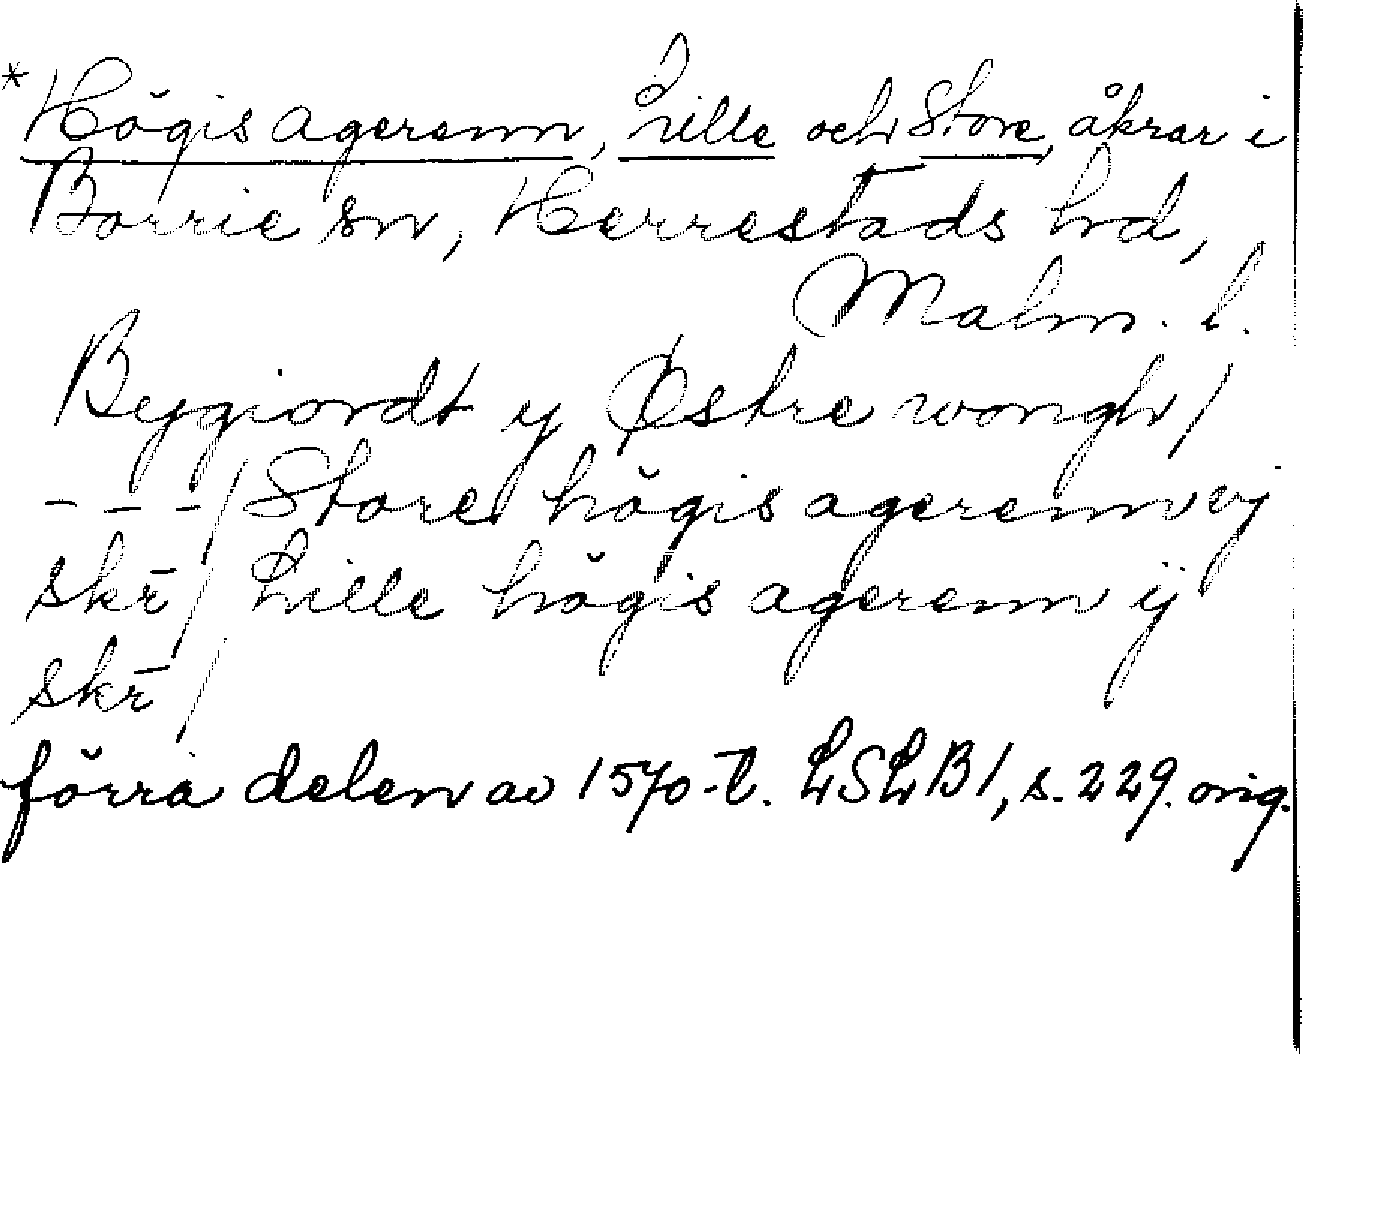 *Högis agerenn, Lille och Store, åkrar i
Borrie sn, Herrestads hd,
Malm. l.
Bygiordt y Østre wongh/
- - - / Store högis agerenn vij
skr̄ / Lille högis agerenn ij
skr̄ /
förra delen av 1570-t. LSLB1, s. 229. orig.